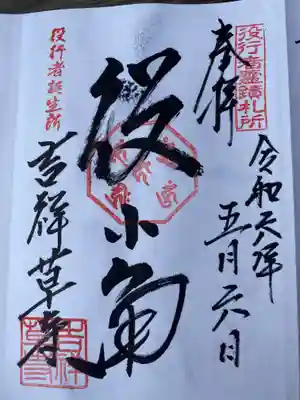 役行者霊蹟札所
奉拝
令和六年
五月六日
役小角
役行者誕生所
吉祥草寺